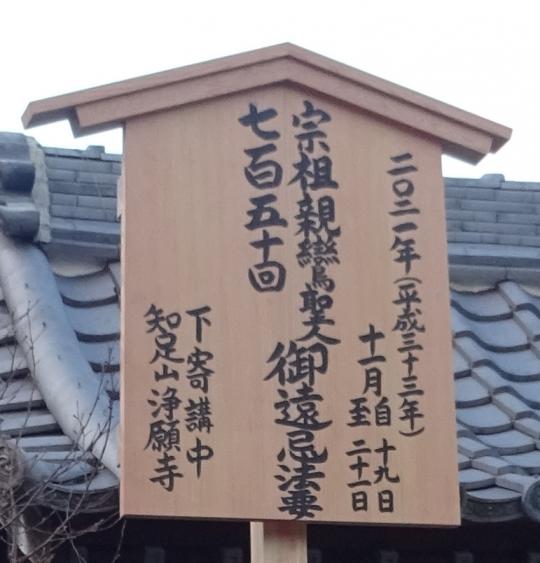 二〇二一年(平成三十三年)
十一月自十九日
至二十一日
宗祖親鸞聖人
七百五十回
御遠忌法要
下寄講中
知足山浄願寺